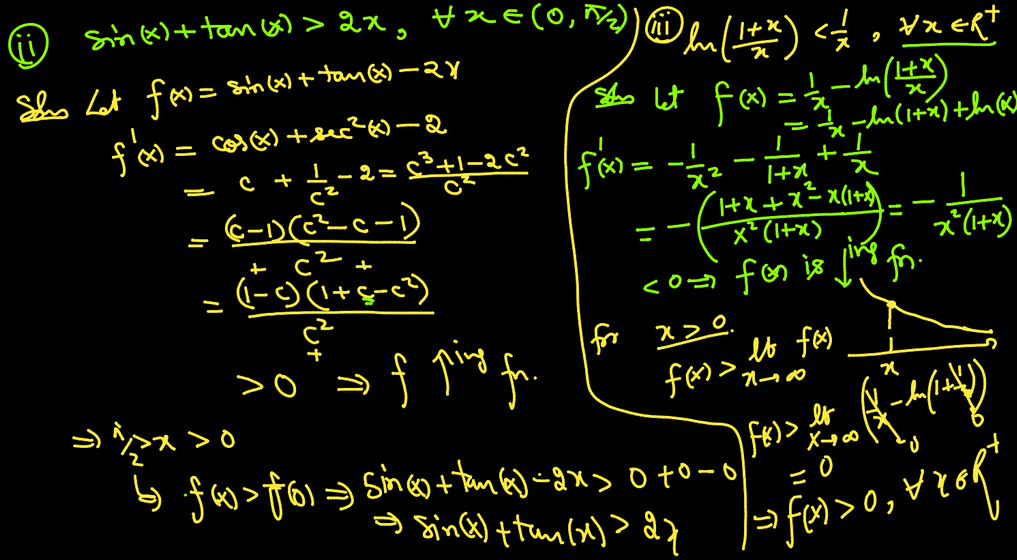 (ii) sin(x)+tan(x) > 2x, ∀ x ∈ (0, π/2)
Soln Let f(x) = sin(x)+tan(x)-2x
f'(x) = cos(x)+sec²(x)-2
= c + 1/c² - 2 = (c³+1-2c²)/c²
= (c-1)(c²-c-1)/c²
+ +
= (1-c)(1+c-c²)/c²
+
> 0 ⇒ f ↑ing fn.
⇒ π/2 > x > 0
↳ f(x) > f(0) ⇒ sin(x)+tan(x)-2x > 0+0-0
⇒ sin(x)+tan(x) > 2x
(iii) ln((1+x)/x) < 1/x, ∀ x ∈ R⁺
Soln Let f(x) = 1/x - ln((1+x)/x)
= 1/x - ln(1+x)+ln(x)
f'(x) = -1/x² - 1/(1+x) + 1/x
= -((1+x+x²-x(1+x))/(x²(1+x))) = -1/(x²(1+x))
< 0 ⇒ f(x) is ↓ing fn.
for x > 0.
f(x) > lt x→∞ f(x)
x
f(x) > lt x→∞ (1/x - ln(1+1/x))
0 0
= 0
⇒ f(x) > 0, ∀ x ∈ R⁺